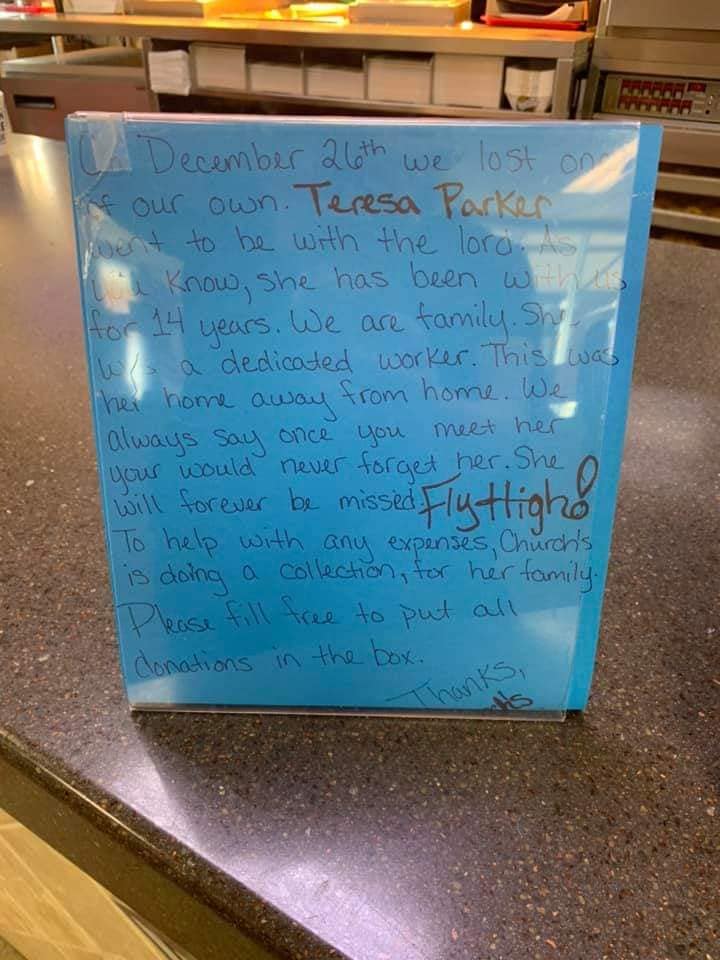 On December 26th we lost one
of our own. Teresa Parker
went to be with the lord. As
you Know, she has been with us
for 14 years. We are family. She
was a dedicated worker. This was
her home away from home. We
always say once you meet her
your would never forget her. She
will forever be missed Fly High!
To help with any expenses, Church's
is doing a collection, for her family.
Please fill free to put all
donations in the box.
Thanks,